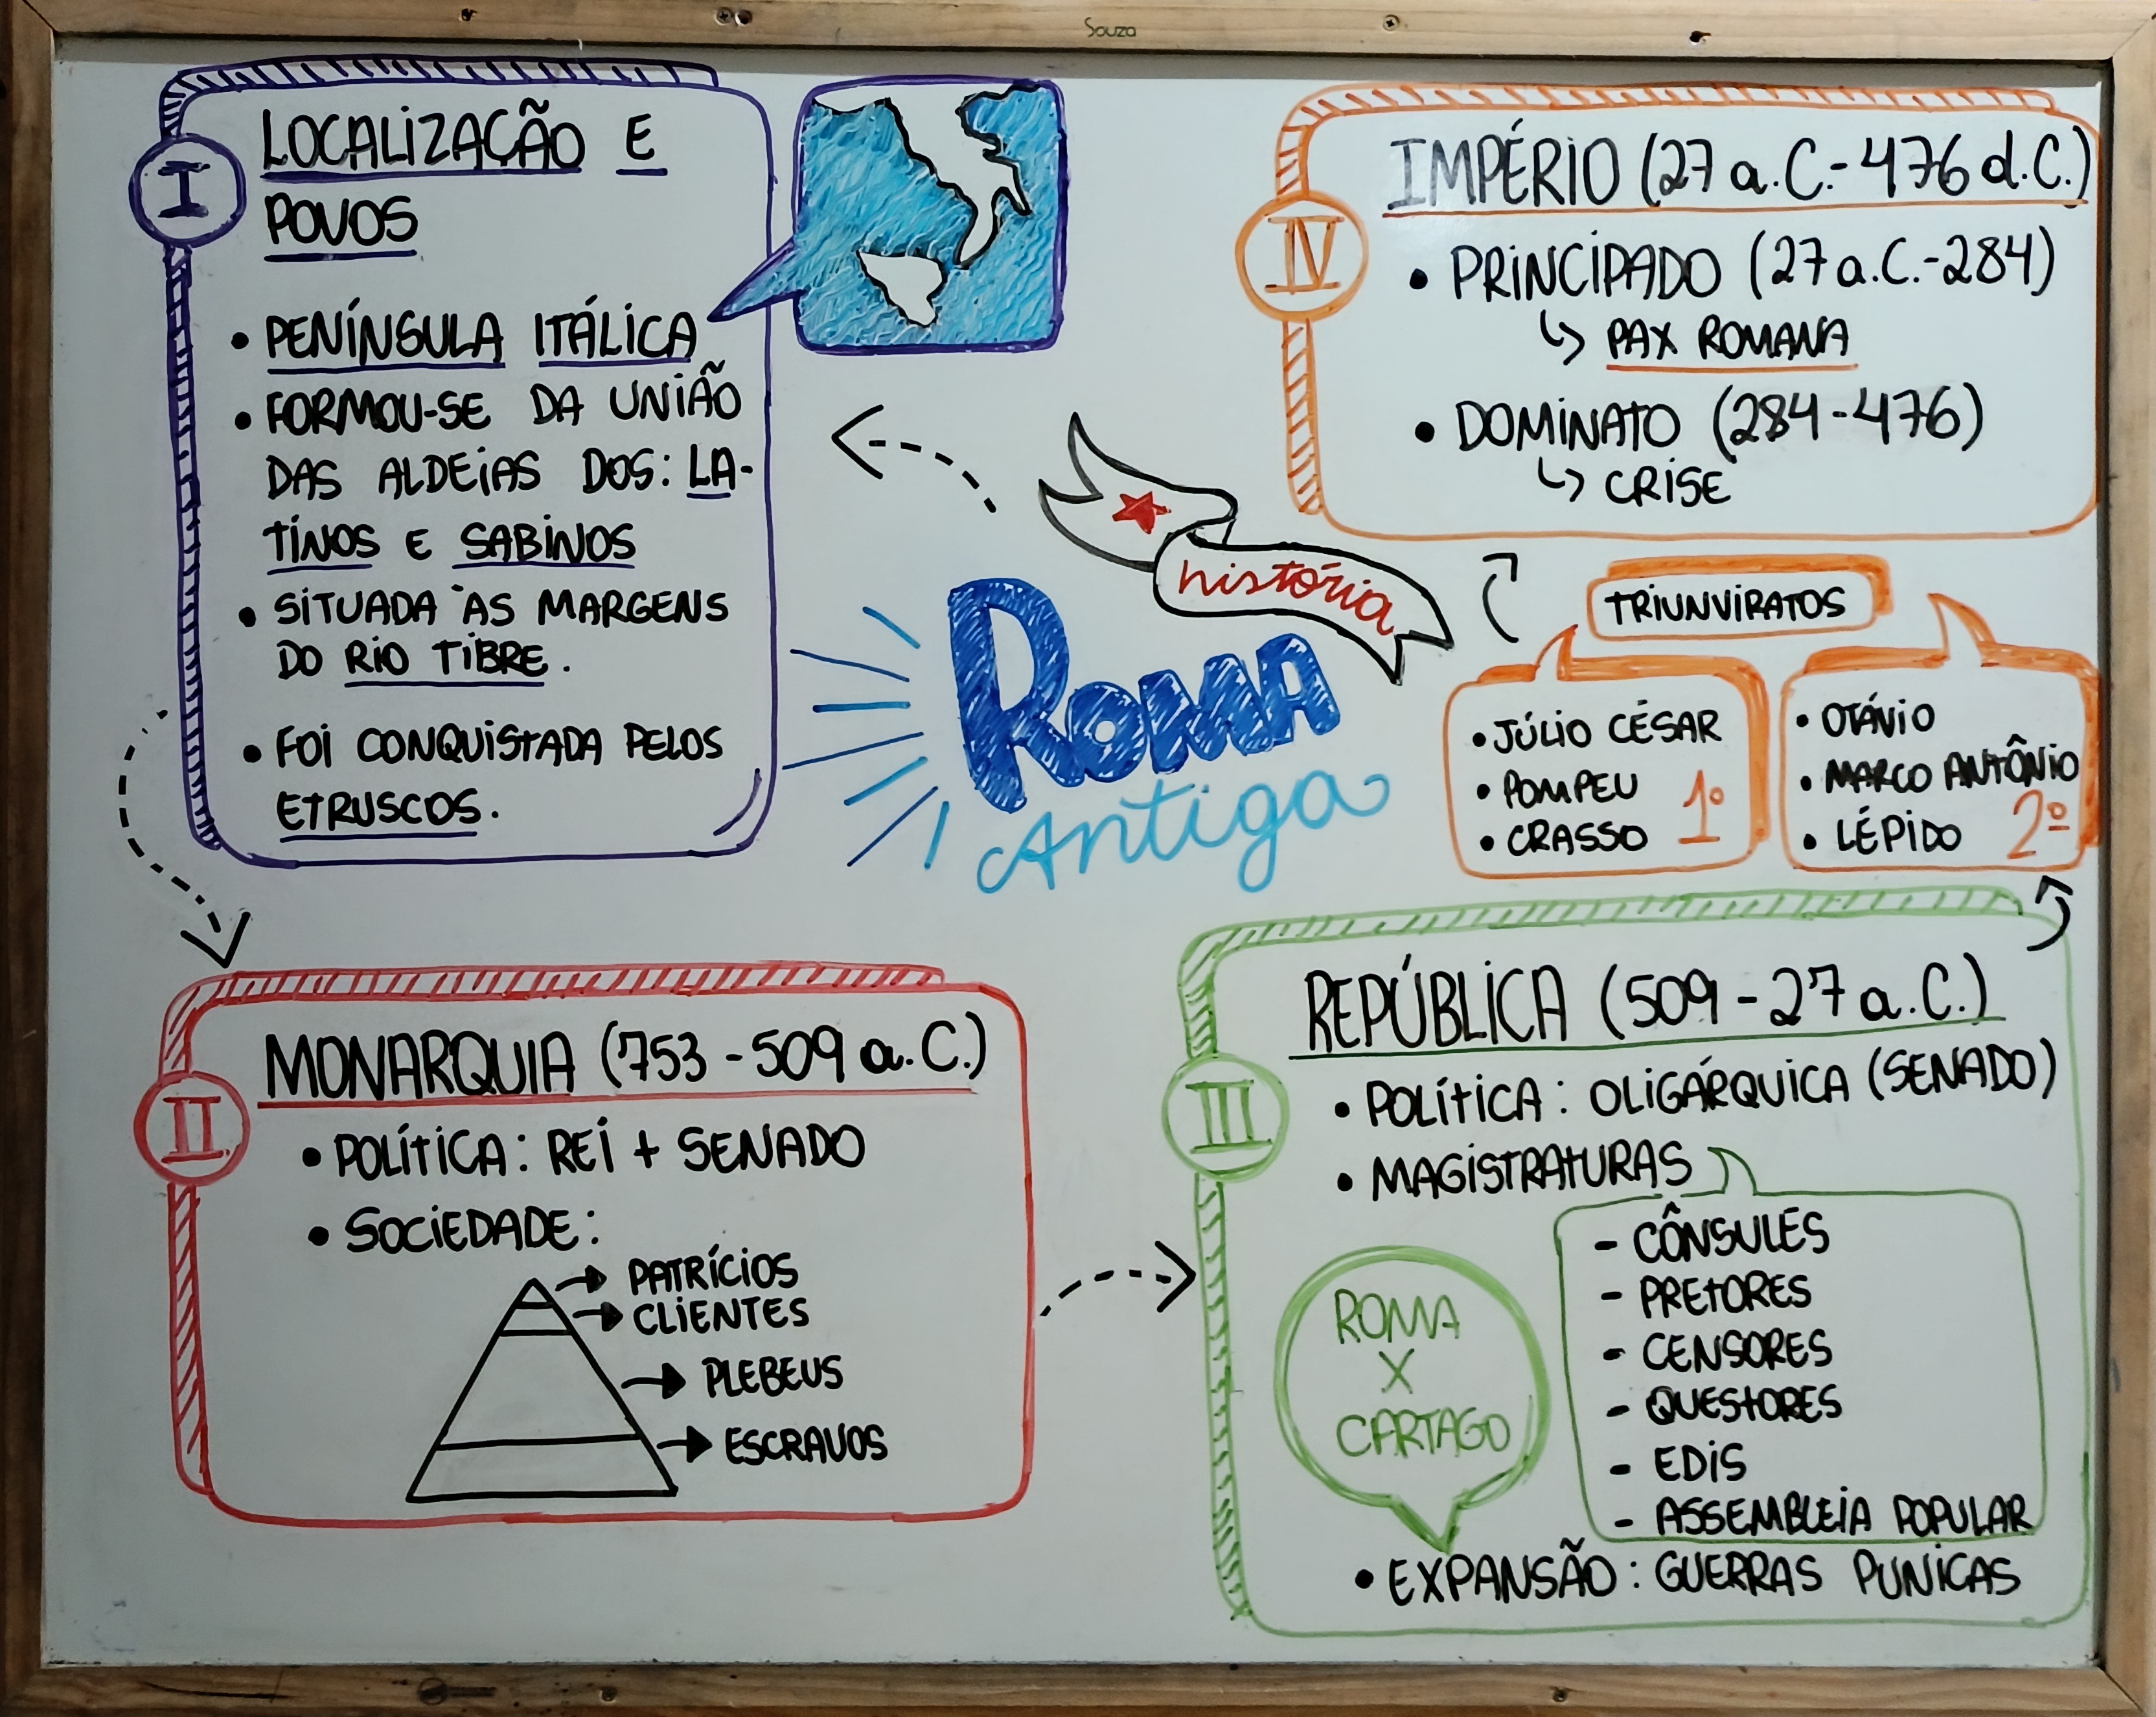 Souza
história
ROMA
Antiga
I
LOCALIZAÇÃO E
POVOS
• PENÍNSULA ITÁLICA
• FORMOU-SE DA UNIÃO
DAS ALDEIAS DOS: LA-
TINOS E SABINOS
• SITUADA ÀS MARGENS
DO RIO TIBRE.
• FOI CONQUISTADA PELOS
ETRUSCOS.
II
MONARQUIA (753 - 509 a.C.)
• POLÍTICA: REI + SENADO
• SOCIEDADE:
PATRÍCIOS
CLIENTES
PLEBEUS
ESCRAVOS
III
REPÚBLICA (509 - 27 a.C.)
• POLÍTICA: OLIGÁRQUICA (SENADO)
• MAGISTRATURAS
- CÔNSULES
- PRETORES
- CENSORES
- QUESTORES
- EDIS
- ASSEMBLEIA POPULAR
ROMA
X
CARTAGO
• EXPANSÃO: GUERRAS PUNICAS
TRIUNVIRATOS
• JÚLIO CÉSAR
• POMPEU
• CRASSO 1º
• OTÁVIO
• MARCO ANTÔNIO
• LÉPIDO 2º
IV
IMPÉRIO (27 a.C.- 476 d.C.)
• PRINCIPADO (27 a.C.-284)
↳ PAX ROMANA
• DOMINATO (284-476)
↳ CRISE